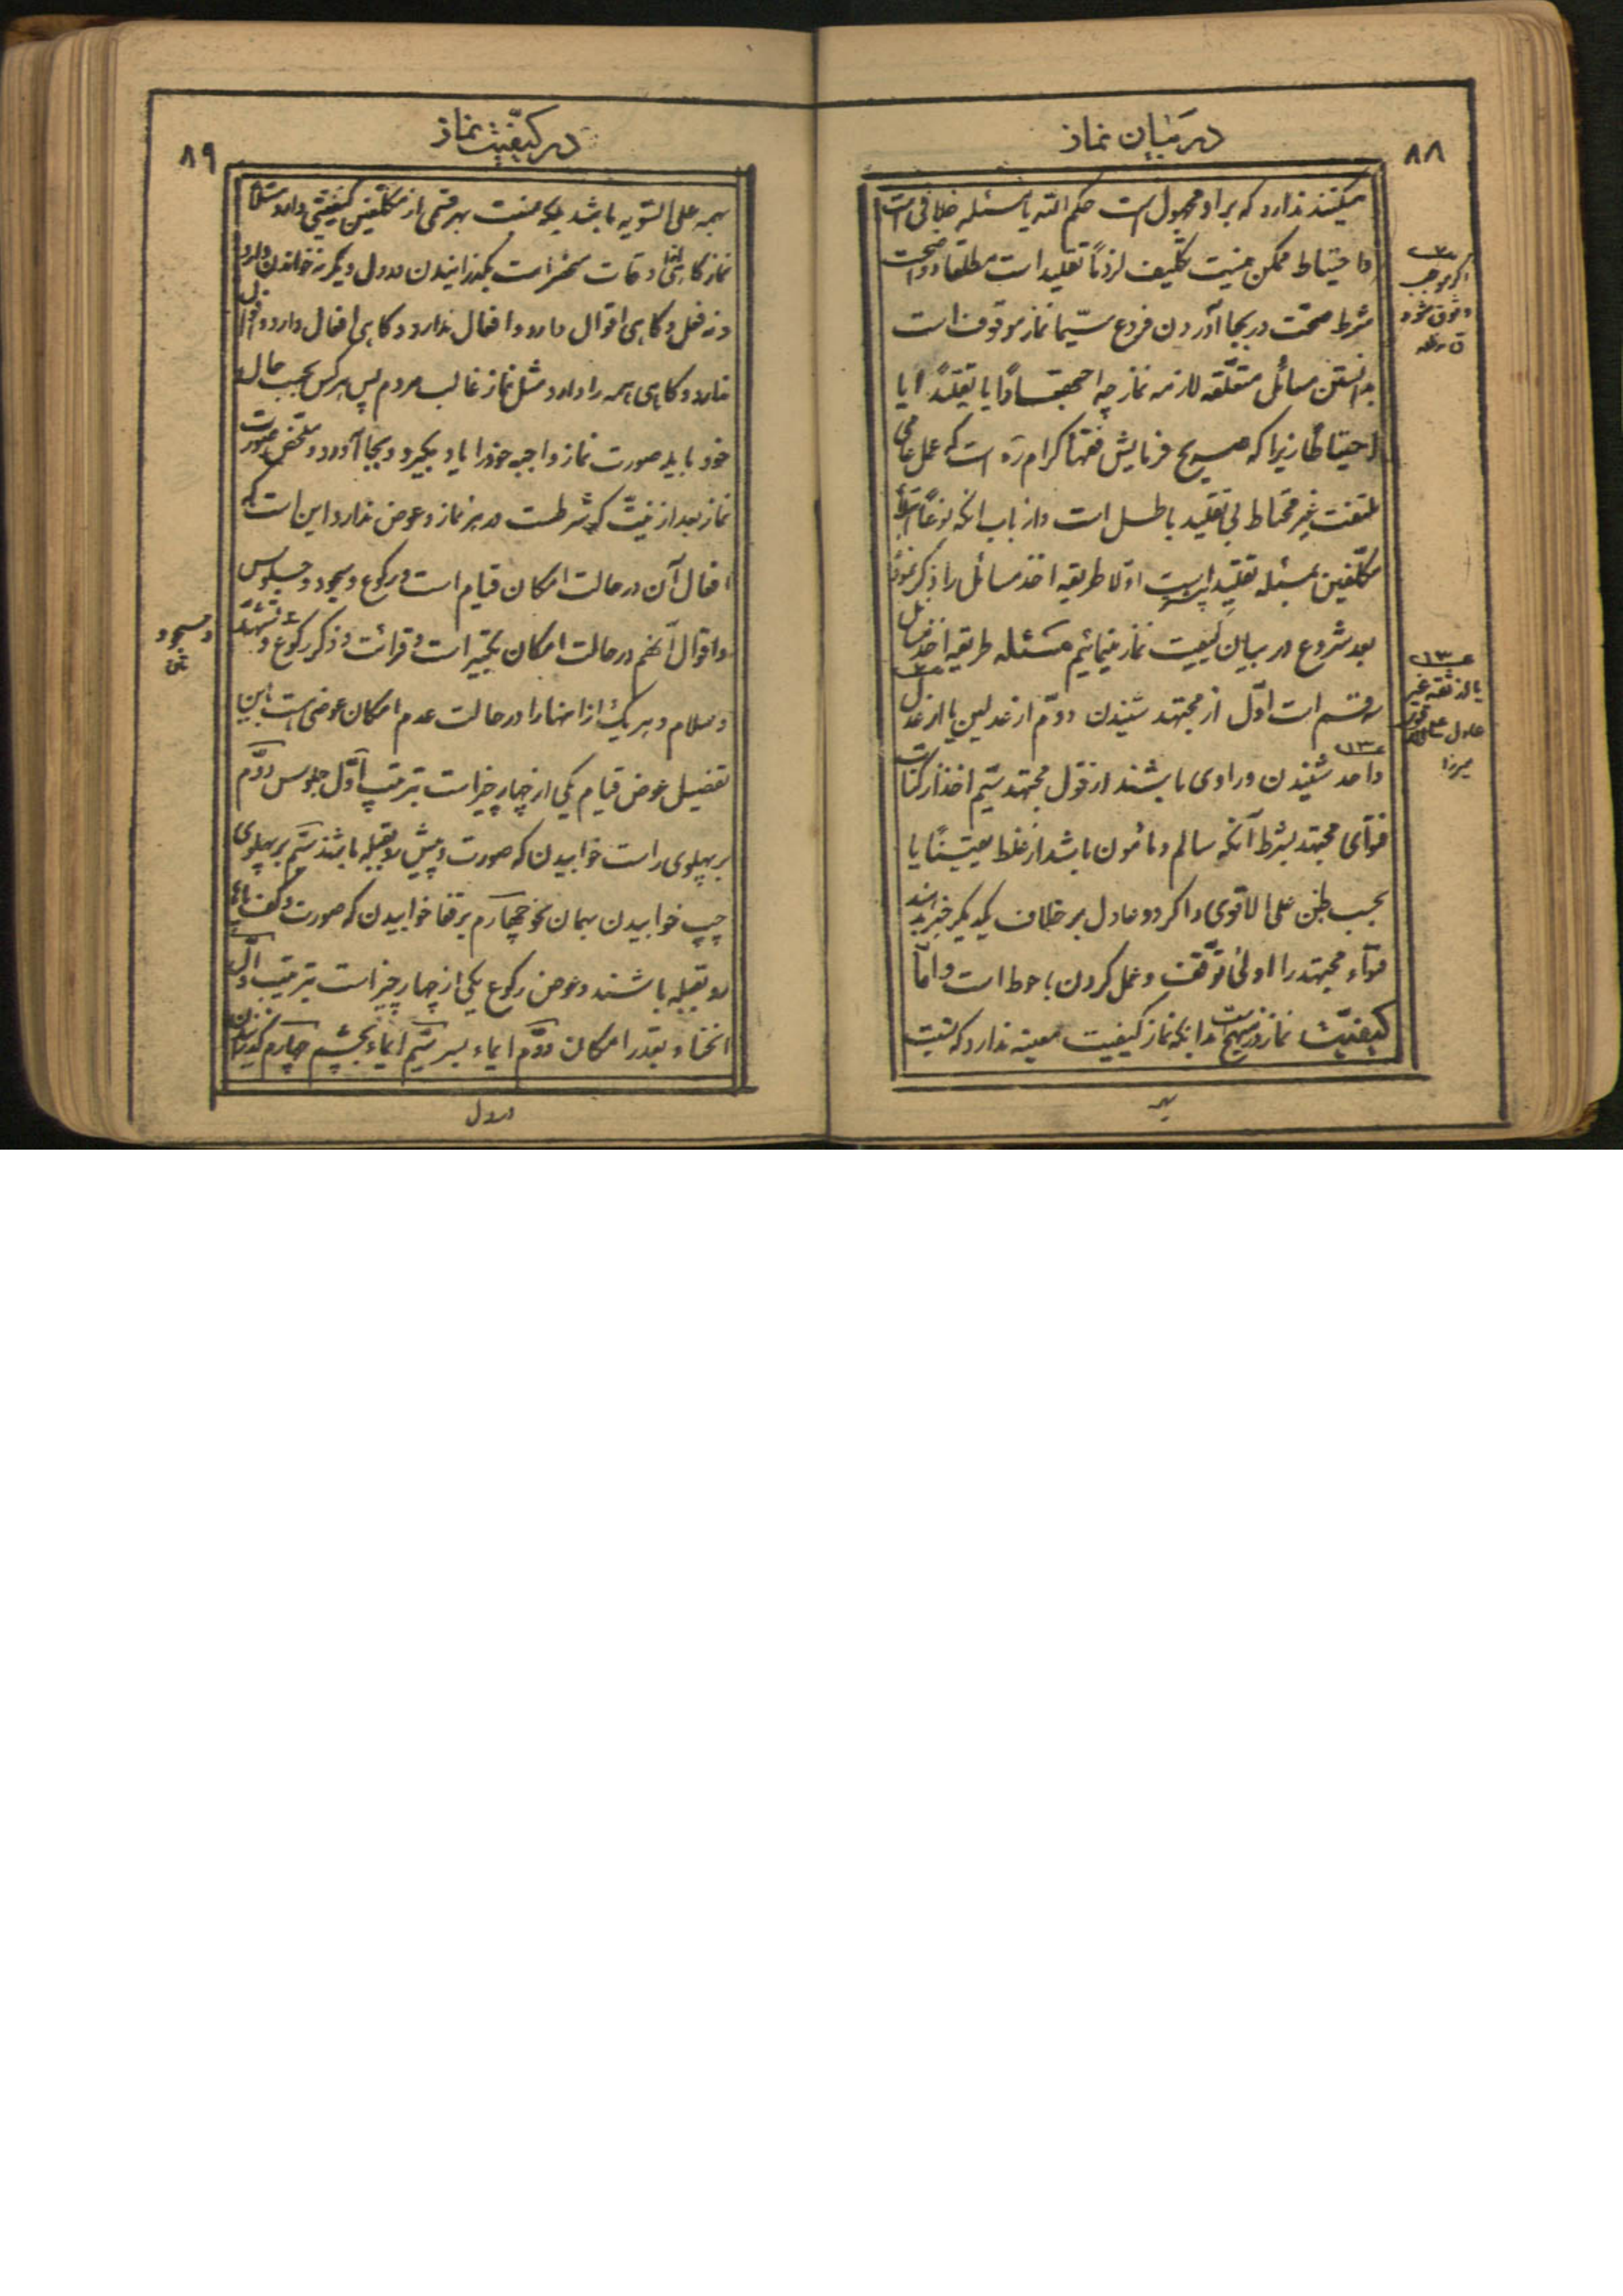 در بیان نماز
۸۸
میکنند ندارد که بر او مجهول است حکم الله یا مسئله خلافی است
و احتیاط ممکن نیست تکلیف لزوماً تقلید است مطلقا و صحت
شرط صحت در بجا آوردن فروع سیّما نماز موقوف است
بدانستن مسائل متعلّقه لازمه نماز چه اجتهاداً یا تقلیداً یا
احتیاطاً زیرا که صریح فرمایش فقهاء کرام ره است که عمل عامی
ملتفت غیر محتاط بی تقلید باطل است و از باب انکه نوعاً
مکلّفین بمسئله تقلید است اوّلا طریقه اخذ مسائل را ذکر نموده
بعد شروع در بیان کیفیت نماز مینمائیم مسئله طریقه اخذ مسائل
سه قسم است اوّل از مجتهد شنیدن دوّم از عدلین یا از عدل
واحد شنیدن و راوی باشند از قول مجتهد سیّم اخذ از کتاب
فتوای مجتهد بشرط آنکه سالم و مأمون باشد از غلط یقیناً یا
بحسب ظن علی الاقوی و اگر دو عادل بر خلاف یکدیگر خبر دهند
فتواء مجتهد را اولی توقّف و عمل کردن باحوط است و امّا
کیفیّت نماز بدانکه نماز کیفیت معینه ندارد که نسبت
به
اگر موجب
وثوق شود
یا از ثقه غیر
عادل
میرزا
در کیفیّت نماز
۸۹
بهمه علی السّویه باشد بلکه نسبت بهر قسمی از مکلّفین کیفیتی دارد مثلا
نماز گاهی اوقات منحصر است بگذرانیدن در دل دیگر نه خواندن دارد
و نه فعل و گاهی اقوال دارد و افعال ندارد و گاهی افعال دارد و اقوال
ندارد و گاهی همه را دارد مثل نماز غالب مردم پس هر کس بحسب حال
خود باید صورت نماز واجبه خود را یاد بگیرد و بجا آورد و ملخص صورت
نماز بعد از نیّت که شرطست در هر نماز و عوض ندارد این است که
افعال آن در حالت امکان قیام است و رکوع و سجود و جلوس
و اقوال آنهم در حالت امکان تکبیر است و قرائت و ذکر رکوع و تشهّد
و سلام و هر یک از اینها را در حالت عدم امکان عوضی است باین
تفصیل عوض قیام یکی از چهار چیز است بترتیب اوّل جلوس دوّم
بر پهلوی راست خوابیدن که صورت و پیش رو بقبله باشد سیّم بر پهلوی
چپ خوابیدن بهمان نحو چهارم بر قفا خوابیدن که صورت و کف پاها
رو بقبله باشند و عوض رکوع یکی از چهار چیز است بترتیب اوّل
انحناء بقدر امکان دوّم ایماء بسر سیّم ایماء بچشم چهارم گذرانیدن
در دل
و سجود